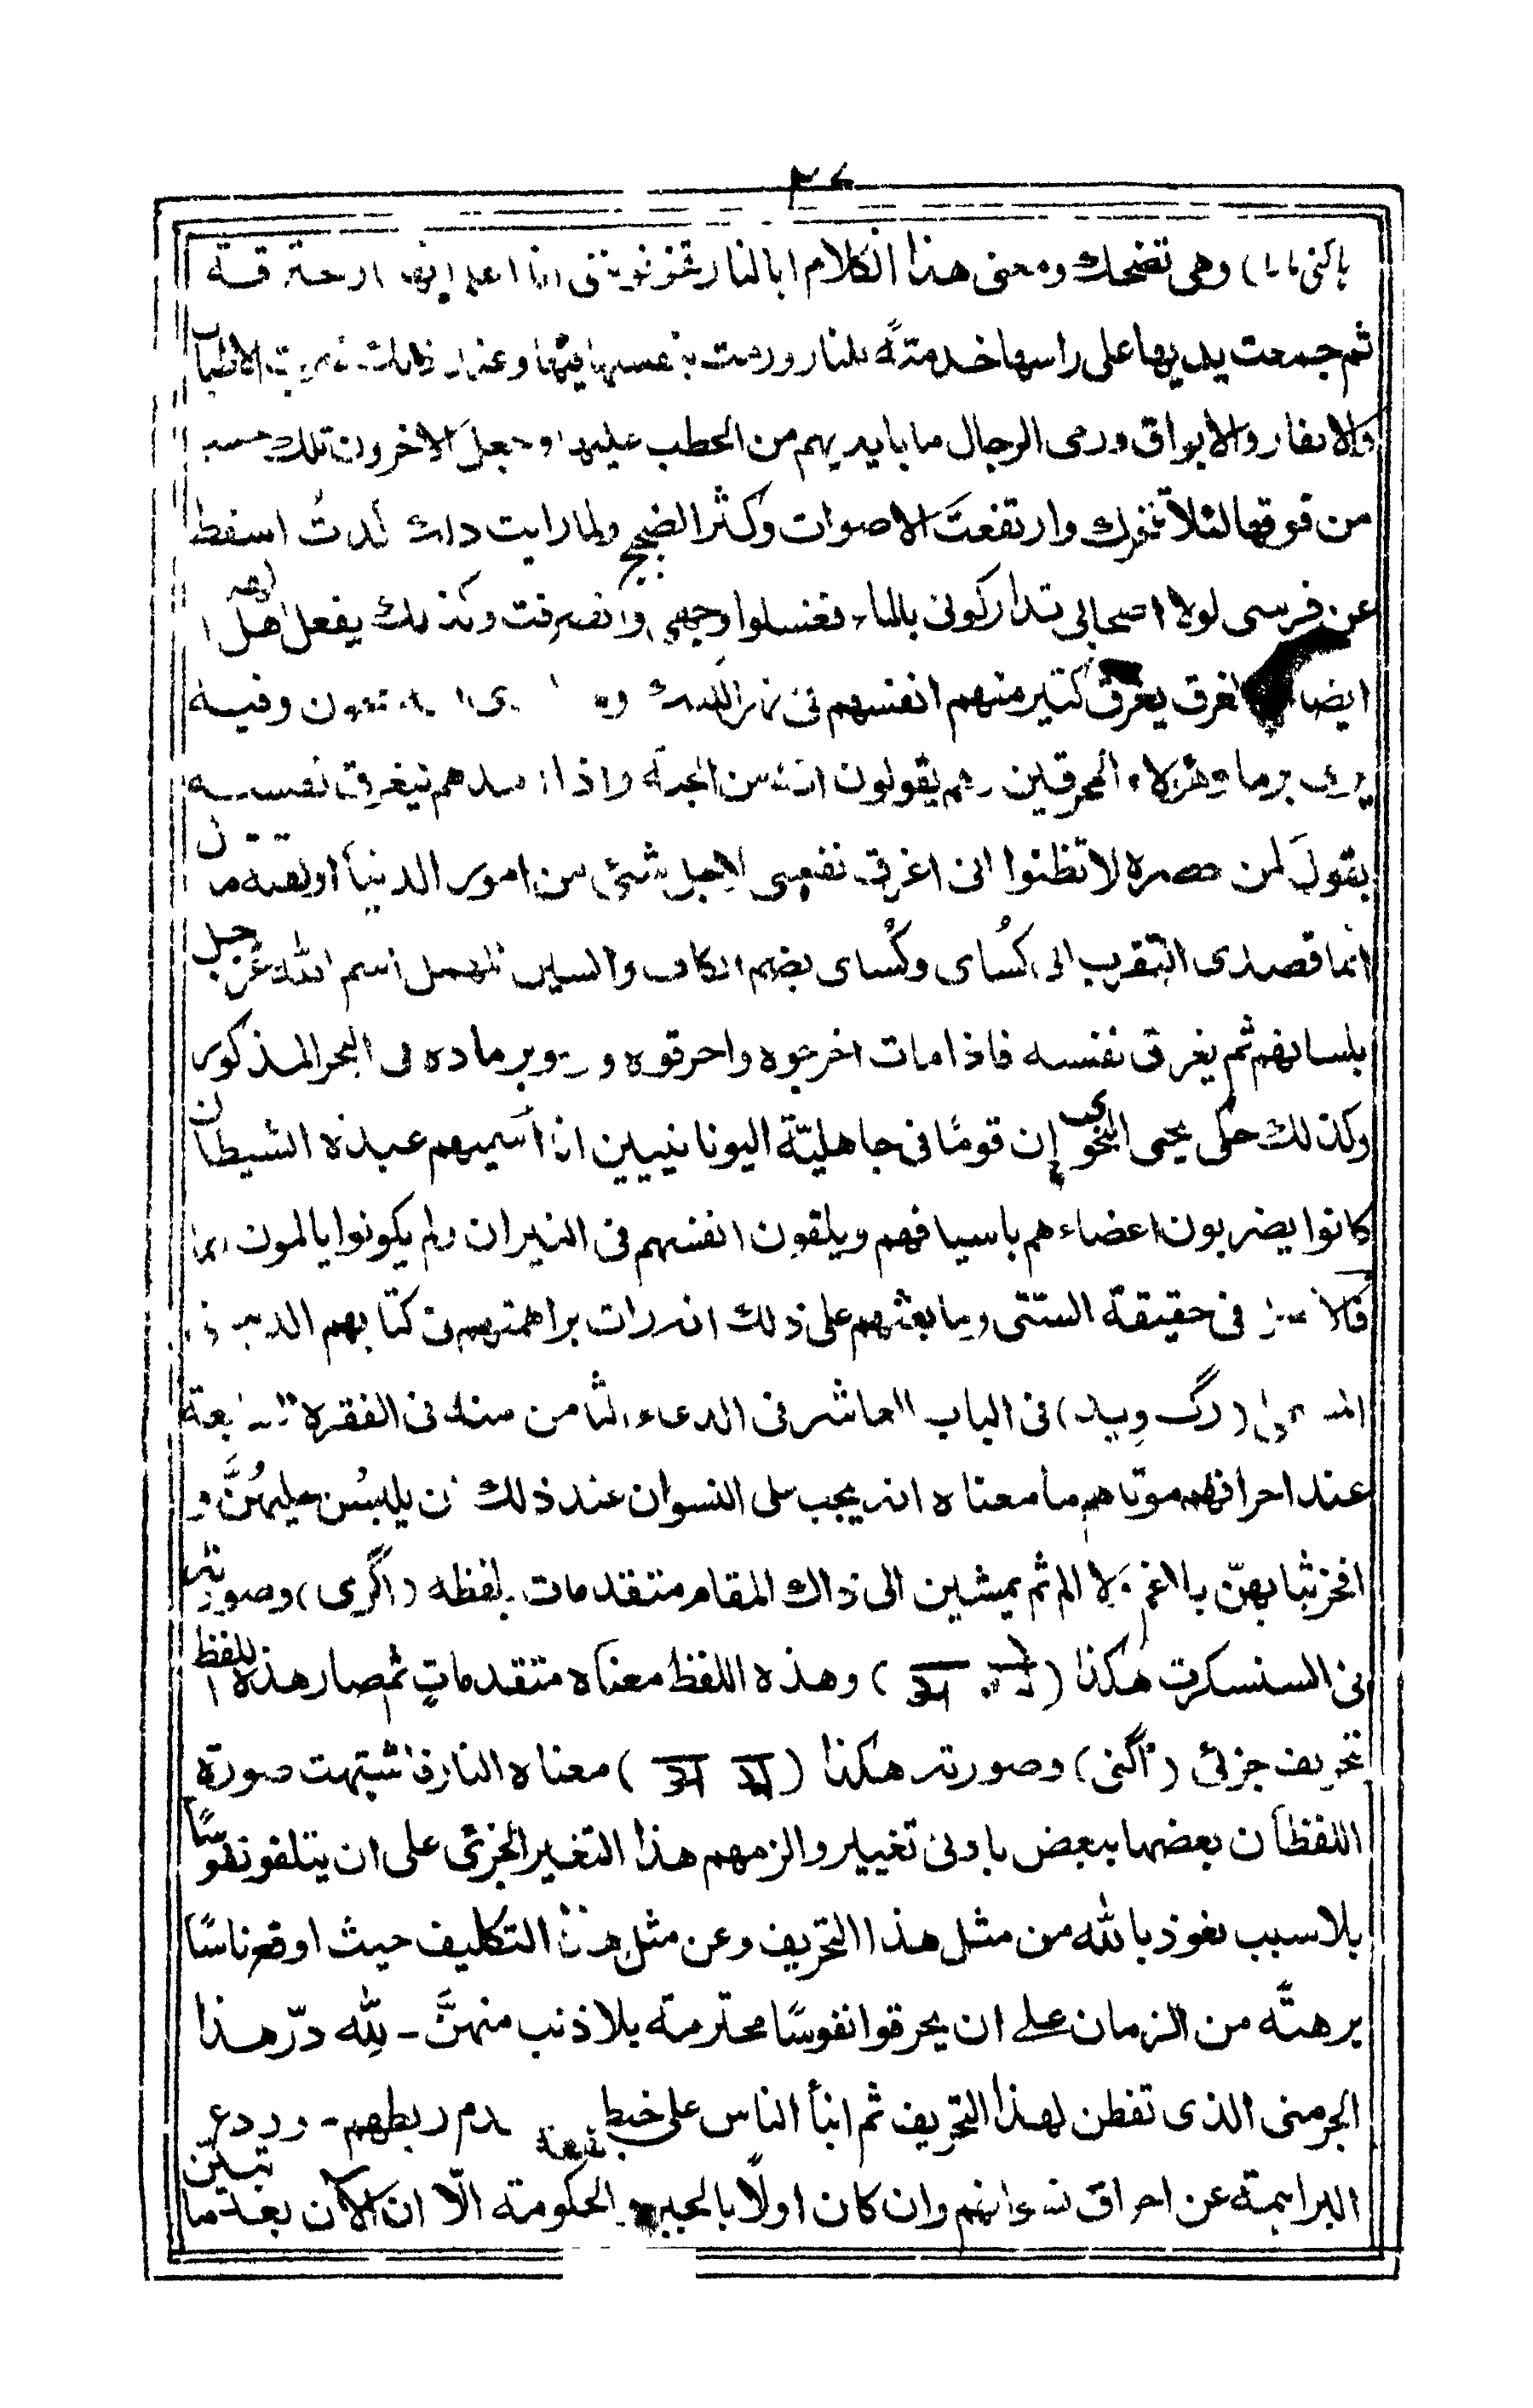 وهى تضحك ومعنى هذا الكلام ابالنار تخوفوننى انا اعلم انها
ثم جمعت يديها على راسها خدمةً للنار ورمت بنفسها فيها وعند ذلك ضربت الاطبال
والانفار والابواق ورمى الرجال ما بايديهم من الحطب عليها وجعل الاخرون تلك
من فوقها لئلا تتحرك وارتفعت الاصوات وكثر الضجيج ولما رايت ذلك كدتُ اسقط
عن فرسى لولا اصحابى تداركونى بالماء فغسلوا وجهى وانصرفت وكذلك يفعل اهل
ايضا الغرق يغرق كثير منهم انفسهم فى نهر الكنك وفيه
يرمى برماد هؤلاء المحرقين وهم يقولون انه من الجنة واذا ليغرق نفسه
يقول لمن حضره لا تظنوا انى اغرق نفسى لاجل شئ من امور الدنيا او لقلة مال
انما قصدى التقرب الى كُساى وكُساى بضم الكاف والسين المهمل اسم الله عز وجل
بلسانهم ثم يغرق نفسه فاذا مات اخرجوه واحرقوه ورموا برماده فى البحر المذكور
وكذلك حكى يحيى النحوى إن قومًا فى جاهليّة اليونانيين انا اسميهم عبدة الشيطان
كانوا يضربون اعضاءهم باسيافهم ويلقون انفسهم فى النيران ولم يكونوا يالمون
فى حقيقة الستى وما بعثهم على ذلك انه رات براهمتهم فى كتابهم
(رگ ويد) فى الباب العاشر فى الدعاء الثامن منه فى الفقرة السابعة
عند احراقهم موتاهم ما معناه انه يجب على النسوان عند ذلك ان يلبسن حليهنَّ و
افخر ثيابهنّ بلا غم ولا الم ثم يمشين الى ذاك المقام متقدمات بلفظه (اگرى) وصورته
فى السنسكرت هكذا ( ) وهذه اللفظ معناه متقدماتٍ ثم صار هذه اللفظ
تحريف جزئى (اگنى) وصورته هكذا ( ) معناه النار فاشتبهت صورة
اللفظان بعضها ببعض بادنى تغيير والزمهم هذا التغير الجزئى على ان يتلفو نفوسًا
بلا سبب نعوذ بالله من مثل هذا التحريف وعن مثل هذا التكليف حيث اوقع ناسًا
برهةً من الزمان على ان يحرقوا نفوسًا محترمة بلا ذنب منهنَّ - لله درّ هذا
الجرمنى الذى تفطن لهذا التحريف ثم انبأ الناس على خبط وعدم ربطهم - وردع
البراهمة عن احراق نسوانهم وان كان اولًا بالجبر الحكومة الّا ان الآن بعد ما تبين